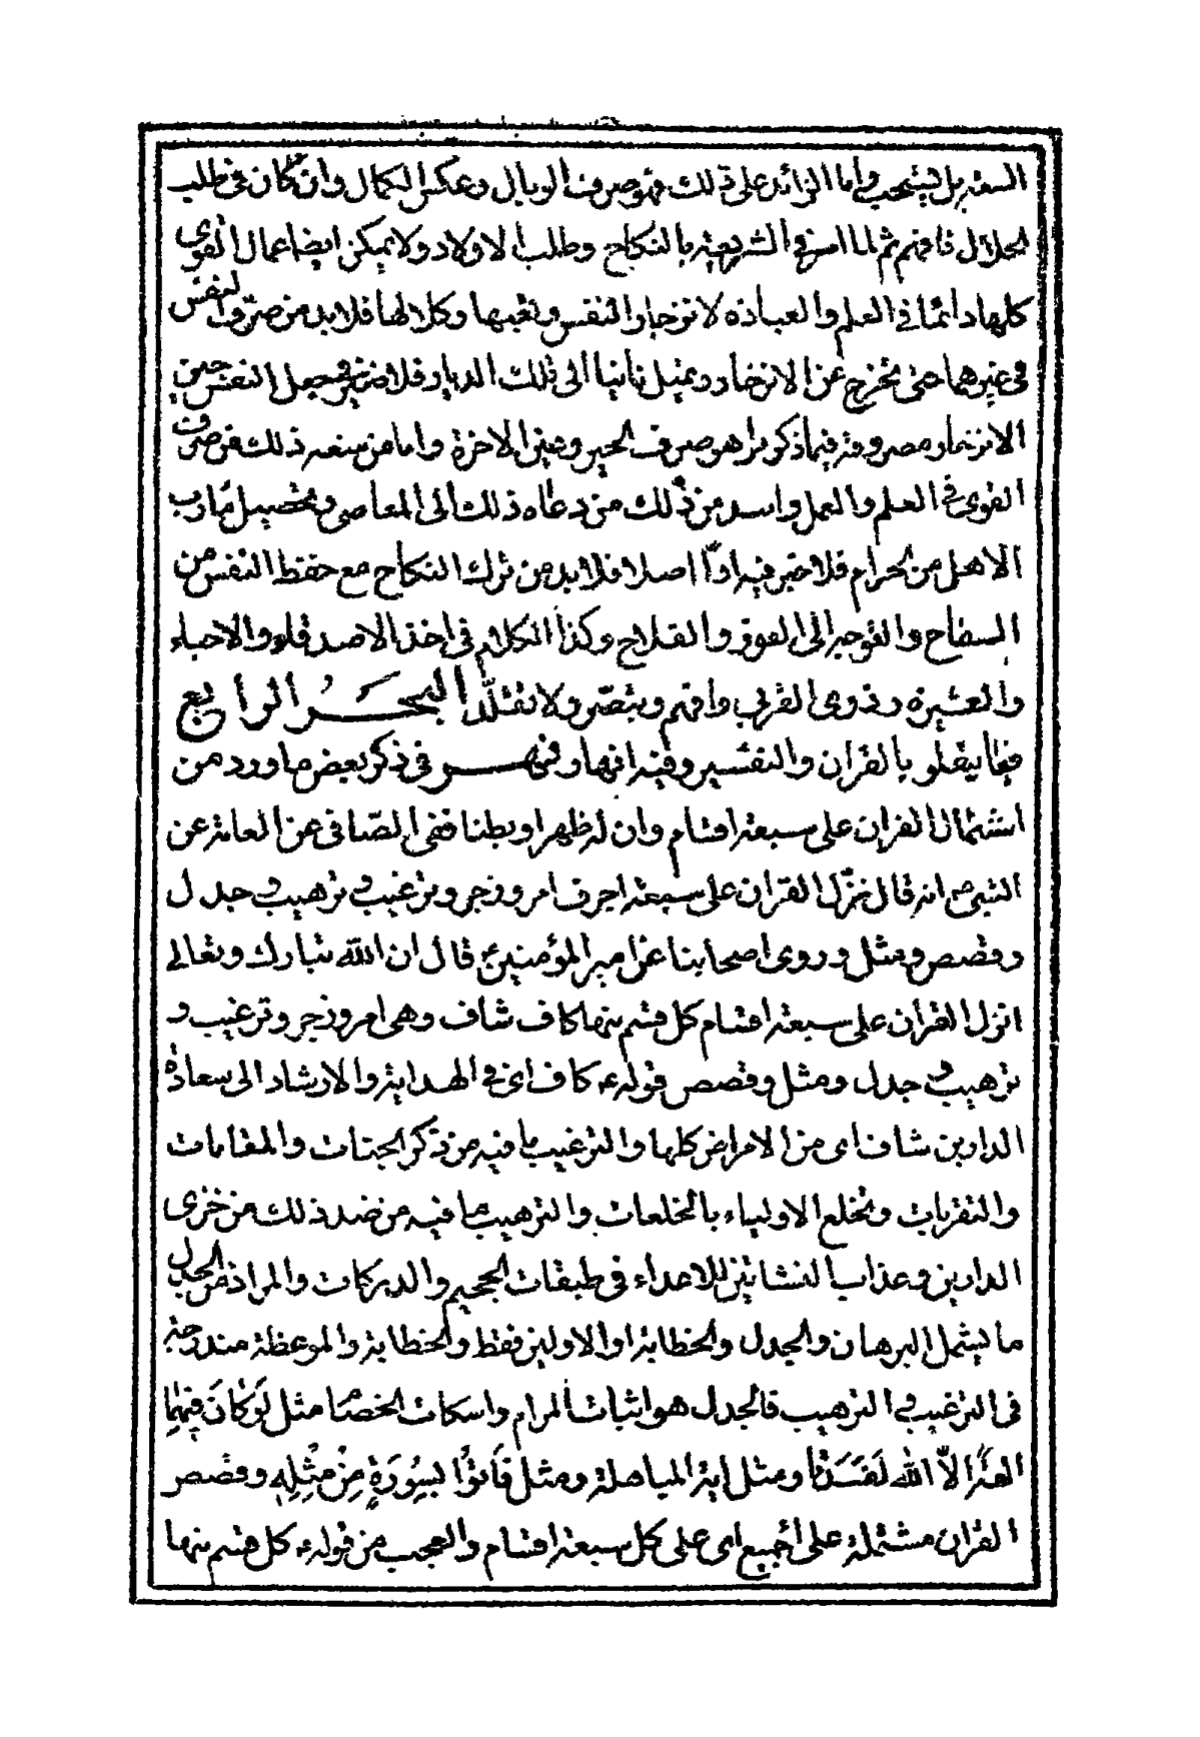 السعة بل يستحب واما الزائد على ذلك فهو صرف الوبال وعكس الكمال وان كان فى طلب
الحلال فافهم ثم لما امر فى الشريعة بالنكاح وطلب الاولاد ولا يمكن ايضا عمال القوى
كلها دائما فى العلم والعبادة لانزجار النفس وتعبها وكلالها فلا بد من صرف النفس
فى غيرهما حتى تخرج عن الانزجار وتميل ثانيا الى تلك الديار فلا ضير فى جعل النفس حين
الانزجار مصروفة فيما ذكر بل هو صرف الخير وعين الاخرة واما من منعه ذلك عن صرف
القوى فى العلم والعمل واسد من ذلك من دعاه ذلك الى المعاصى وتحصيل مآرب
الاهل من الحرام فلا خير فيه اذًا اصلا فلا بد من ترك النكاح مع حفظ النفس من
السفاح والتوجه الى الفوز والفلاح وكذا الكلام فى اخذ الاصدقاء والاحباء
والعشيرة وذوى القربى وافهم وتبصّر ولا تقلّد البَحَرُ الرابع
فيما يتعلق بالقران والتفسير وفيه انهار نهر فى ذكر بعض ما ورد من
اشتمال القران على سبعة اقسام وان له ظهرا وبطنا ففى الصّافى عن العامة عن
النبى ص انه قال نزّل القران على سبعة احرف امر وزجر وترغيب وترهيب وجدل
وقصص ومثل وروى اصحابنا عن امير المؤمنين ع قال ان الله تبارك وتعالى
انزل القران على سبعة اقسام كل قسم منها كاف شاف وهى امر وزجر وترغيب و
ترهيب وجدل ومثل وقصص قوله ع كاف اى فى الهداية والارشاد الى سعادة
الدارين شاف اى من الامراض كلها والترغيب ما فيه من ذكر الجنات والمقامات
والتقربات وتخلع الاولياء بالخلعات والترهيب ما فيه من ضد ذلك من خزى
الدارين وعذاب النشاتين للاعداء فى طبقات الجحيم والدركات والمراد من الجدل
ما يشمل البرهان والجدل والخطابة او الاولين فقط والخطابة والموعظة مندرجة
فى الترغيب والترهيب فالجدل هو اثبات المرام واسكات الخصام مثل لَوْ كَانَ فِيْهِمٰا
الهَةٌ الاّ اللهُ لَفَسَدَتٰا ومثل اية المباهلة ومثل فَأتوُا بِسُورَةٍ مِنْ مِثْلِهِ وقصص
القران مشتملة على الجميع اى على كل سبعة اقسام والعجب من قوله ع كل قسم منها